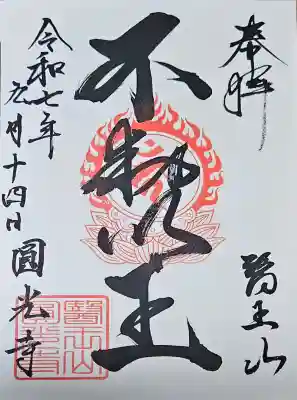 奉拝
醫王山
不動明王
令和七年
元月十四日
圓光寺
醫王山
圓光寺